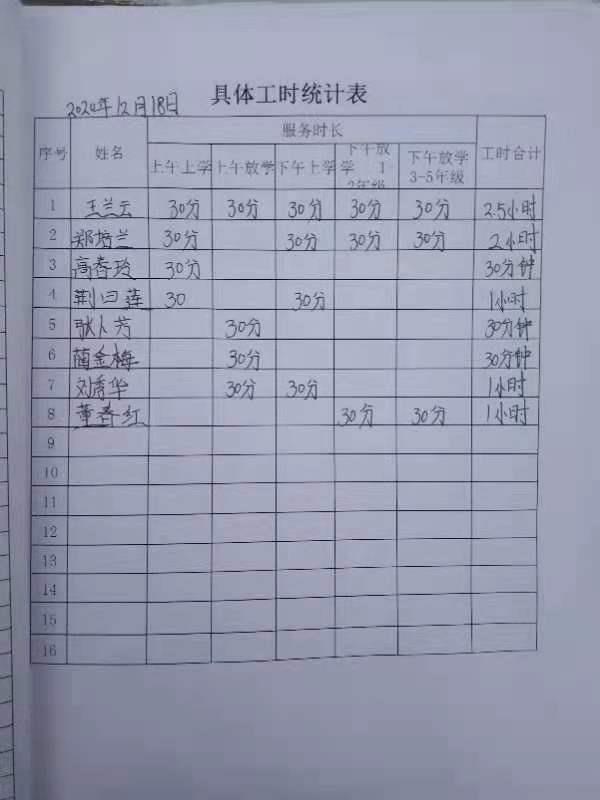 2024年12月18日 具体工时统计表
序号 姓名 服务时长 工时合计
上午上学 上午放学 下午上学 下午放学 1-2年级 下午放学 3-5年级
1 王兰云 30分 30分 30分 30分 30分 2.5小时
2 郑培兰 30分 30分 30分 30分 2小时
3 高春玲 30分 30分钟
4 荆曰莲 30 30分 1小时
5 耿人芳 30分 30分钟
6 蔺金梅 30分 30分钟
7 刘秀华 30分 30分 1小时
8 董春红 30分 30分 1小时
9
10
11
12
13
14
15
16